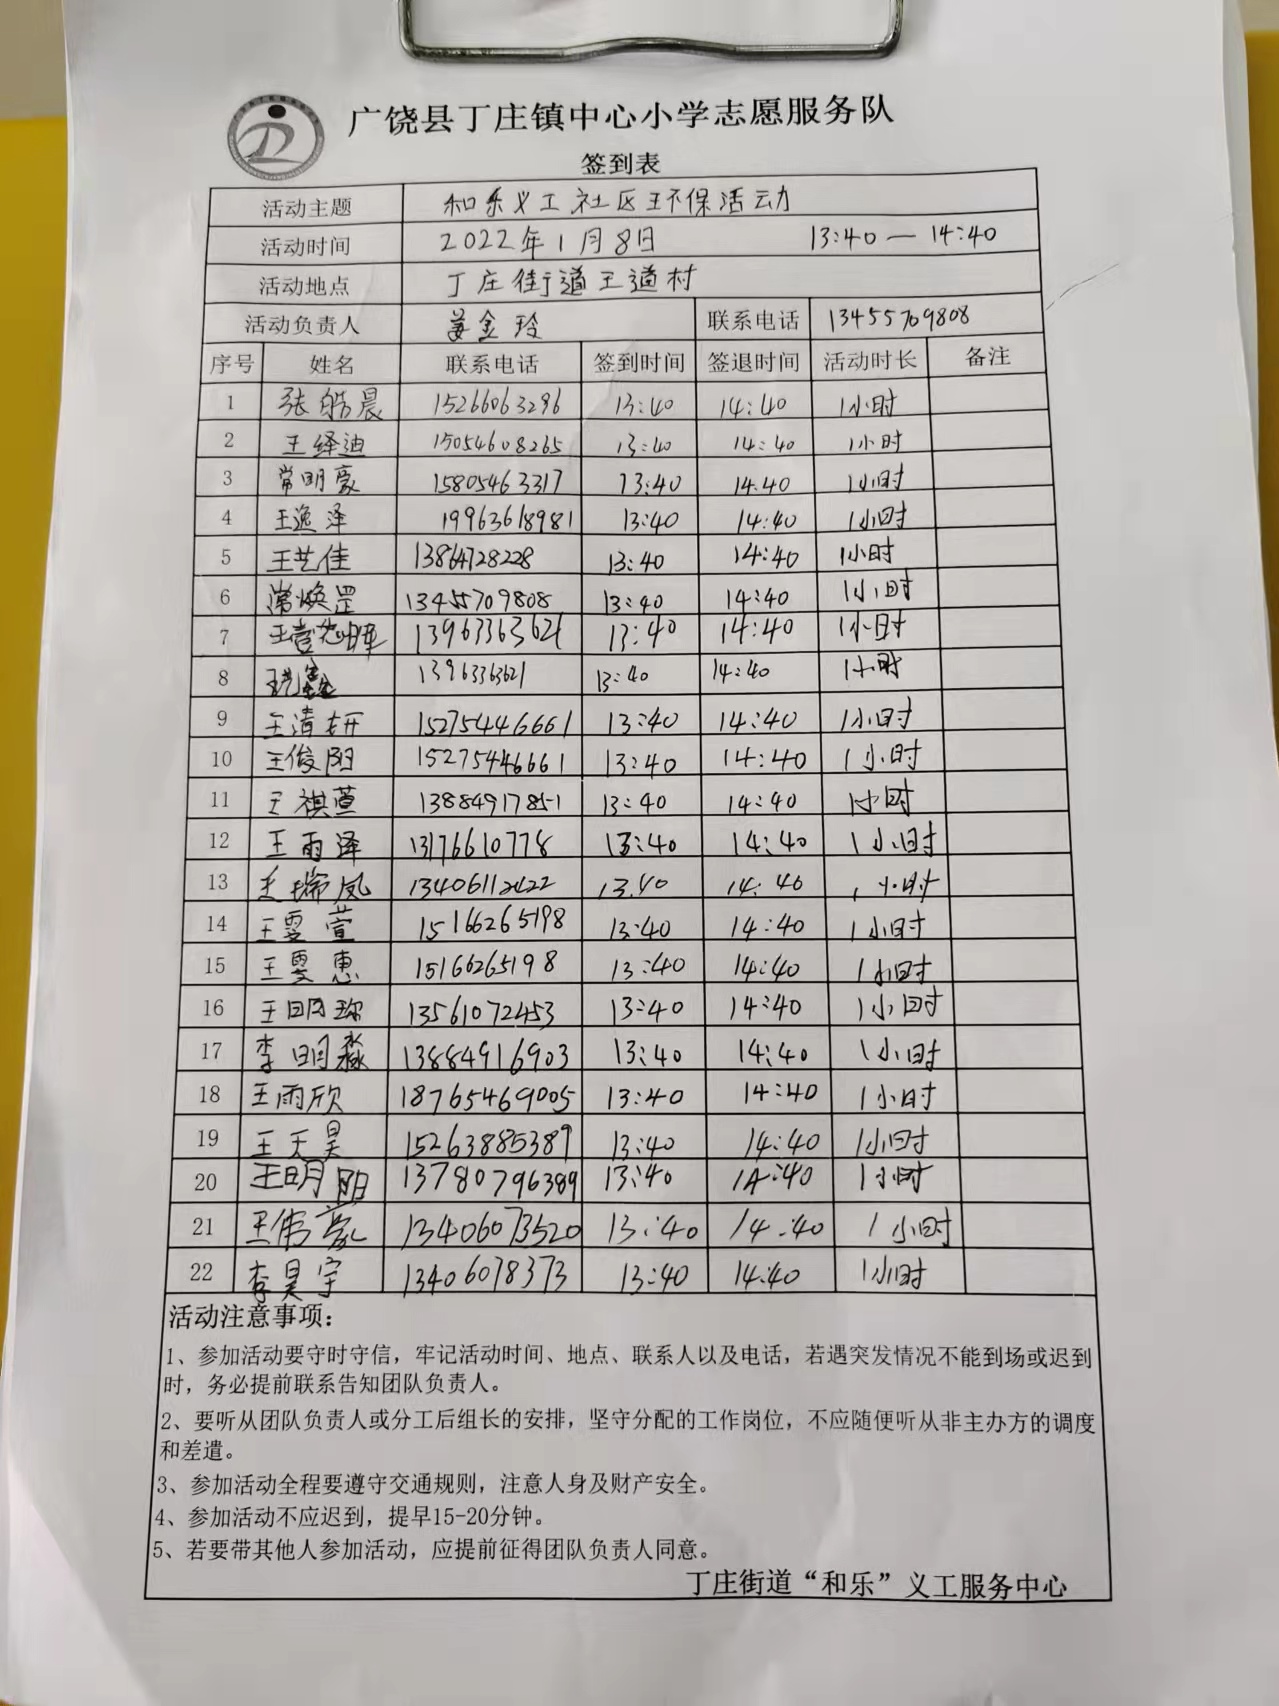 广饶县丁庄镇中心小学志愿服务队
签到表
活动主题 和乐义工社区环保活动
活动时间 2022年1月8日 13:40—14:40
活动地点 丁庄街道王道村
活动负责人 姜金玲 联系电话 13455709808
序号 姓名 联系电话 签到时间 签退时间 活动时长 备注
1 张皓晨 15266063296 13:40 14:40 1小时
2 王绎迪 15054608265 13:40 14:40 1小时
3 常明豪 15805463317 13:40 14:40 1小时
4 王逸泽 19963618981 13:40 14:40 1小时
5 王艺佳 13864728228 13:40 14:40 1小时
6 常焕罡 13455709808 13:40 14:40 1小时
7 13963363621 13:40 14:40 1小时
8 13963363621 13:40 14:40 1小时
9 王清妍 15275446661 13:40 14:40 1小时
10 王俊阳 15275446661 13:40 14:40 1小时
11 王祺萱 13884917851 13:40 14:40 1小时
12 王雨泽 13176610778 13:40 14:40 1小时
13 王瑞凤 13406112422 13:40 14:40 1小时
14 王雯萱 15166265198 13:40 14:40 1小时
15 王雯惠 15166265198 13:40 14:40 1小时
16 王明琢 13561072453 13:40 14:40 1小时
17 李明淼 13884916903 13:40 14:40 1小时
18 王雨欣 18765469005 13:40 14:40 1小时
19 王天昊 15263885389 13:40 14:40 1小时
20 王明阳 13780796389 13:40 14:40 1小时
21 王伟豪 13406073520 13:40 14:40 1小时
22 李昊宇 13406078373 13:40 14:40 1小时
活动注意事项:
1、参加活动要守时守信，牢记活动时间、地点、联系人以及电话，若遇突发情况不能到场或迟到
时，务必提前联系告知团队负责人。
2、要听从团队负责人或分工后组长的安排，坚守分配的工作岗位，不应随便听从非主办方的调度
和差遣。
3、参加活动全程要遵守交通规则，注意人身及财产安全。
4、参加活动不应迟到，提早15-20分钟。
5、若要带其他人参加活动，应提前征得团队负责人同意。
丁庄街道“和乐”义工服务中心